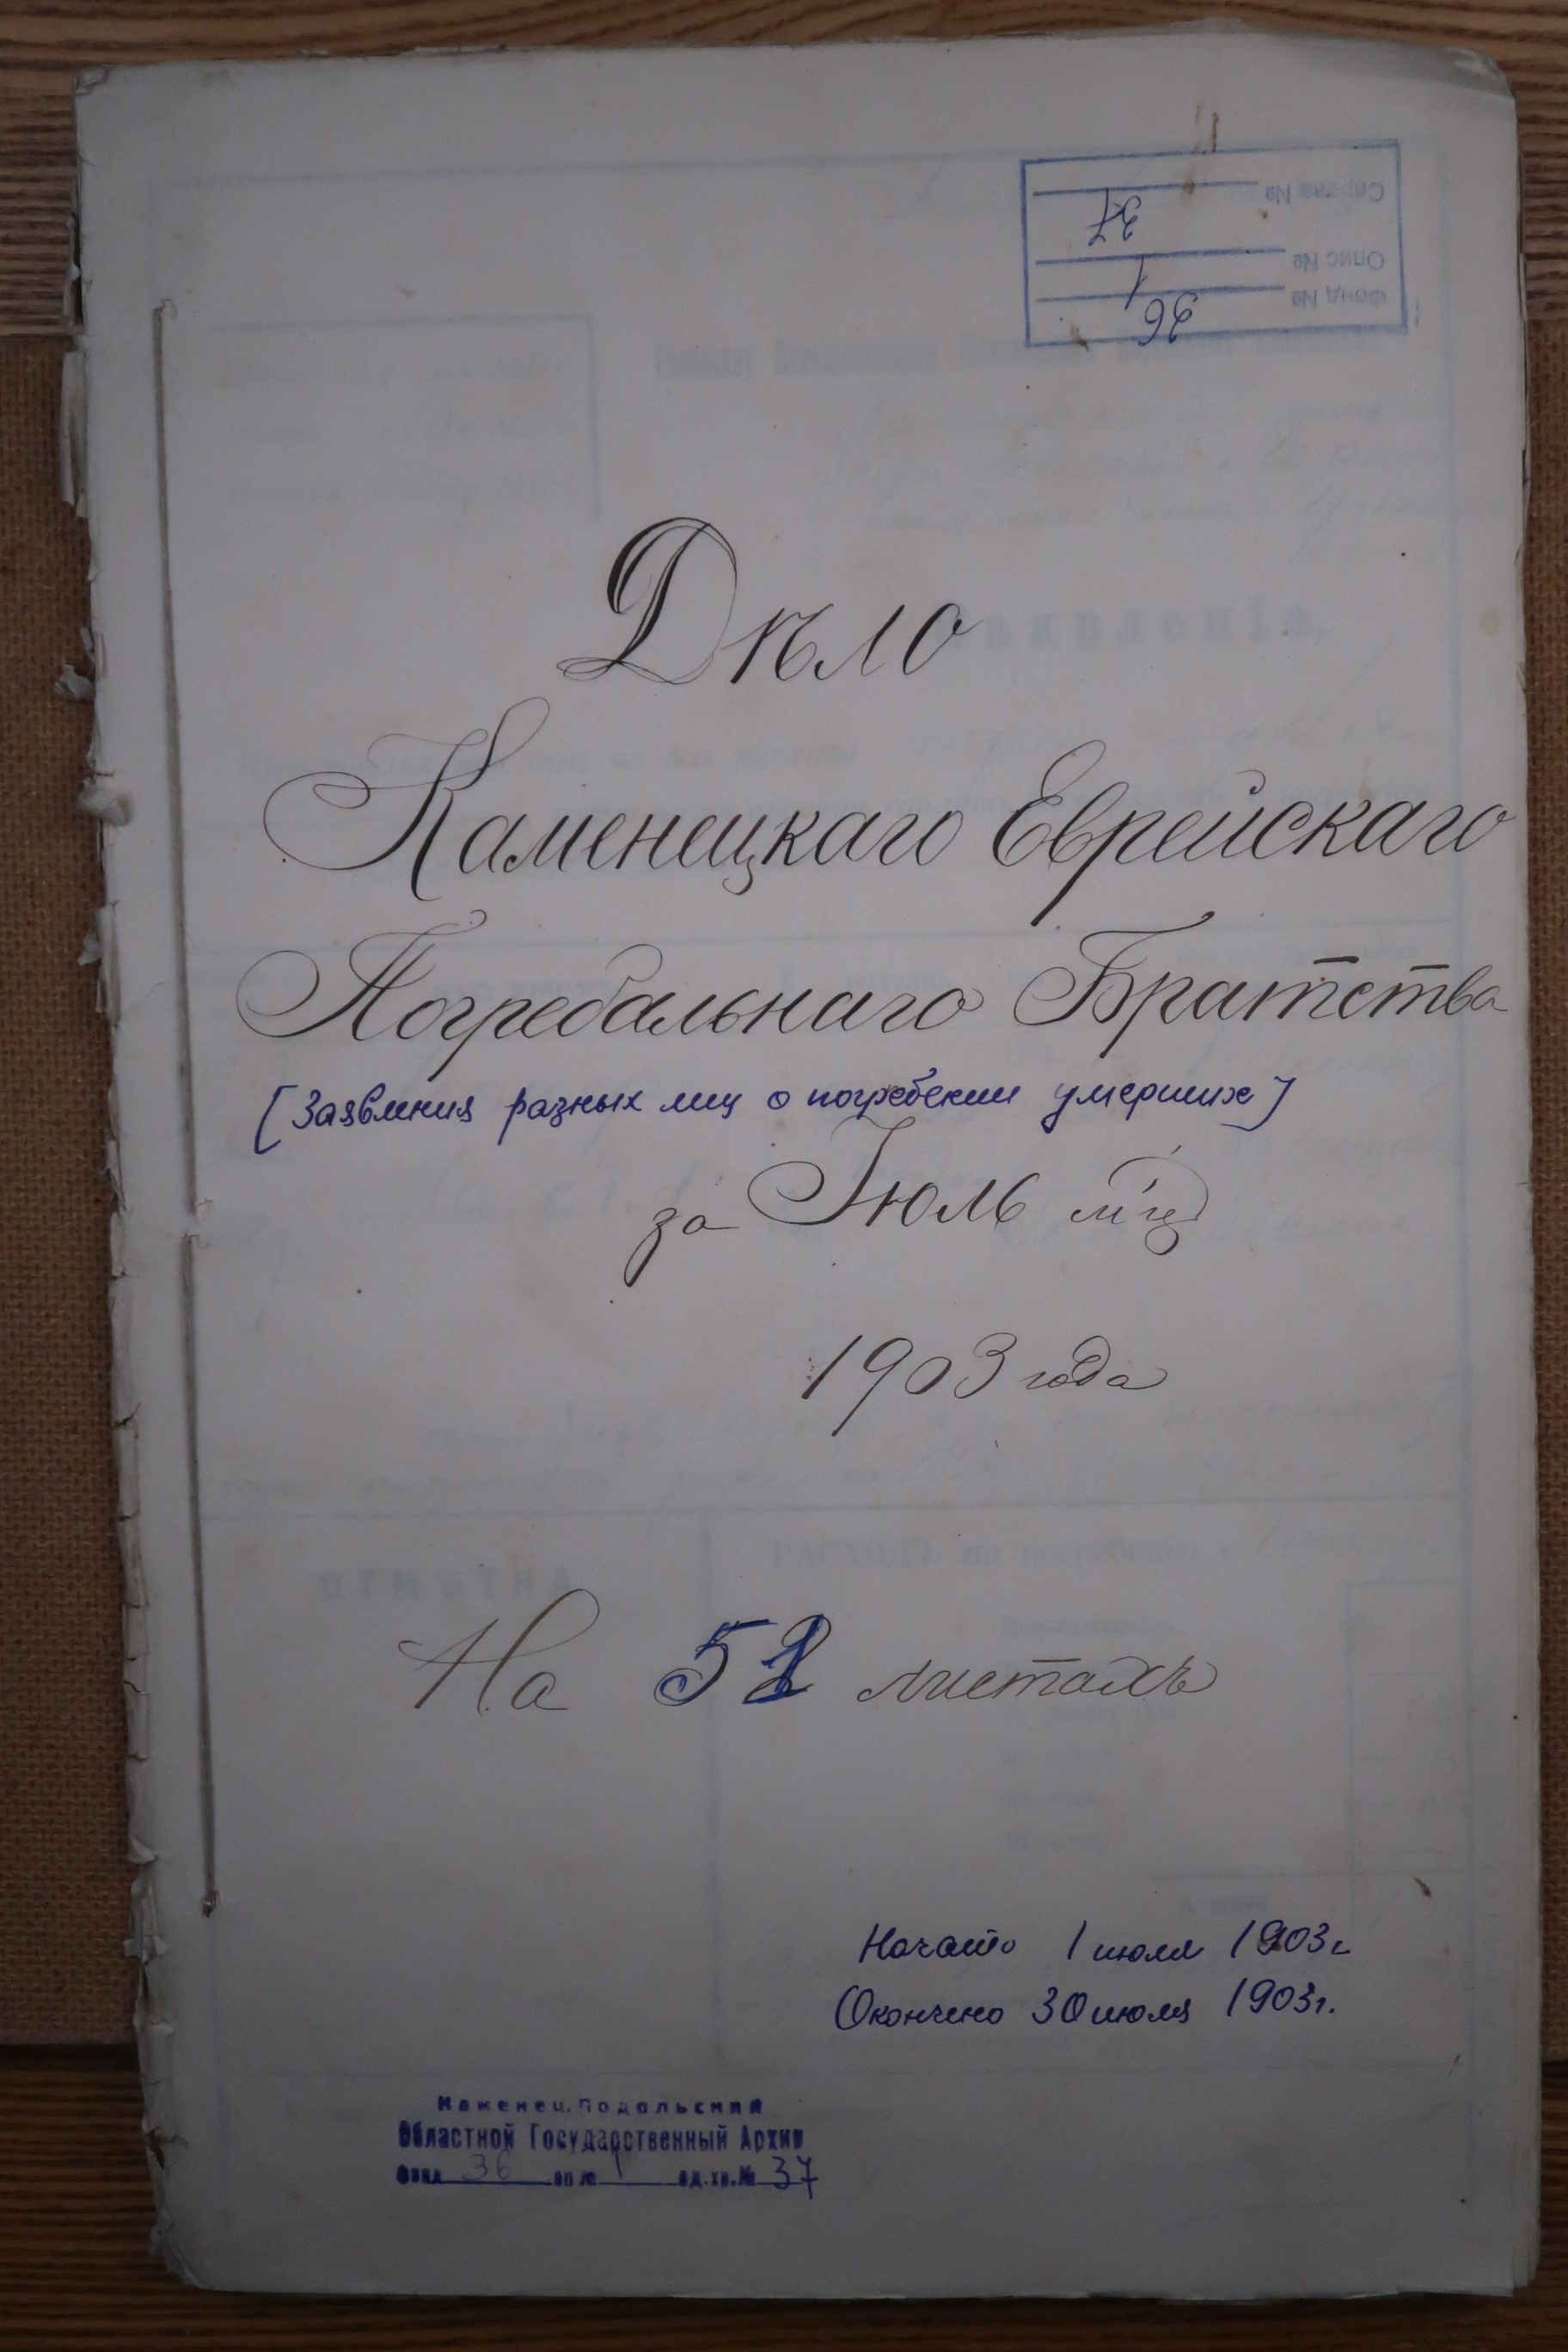 Справа № 37
Опис № 1
Фонд № 36
Дѣло
Каменецкаго Еврейскаго
Погребальнаго Братства
[Заявления разных лиц о погребении умерших]
за Іюль м‑цъ
1903 года
На 51 листахъ
Начато 1 июля 1903 г.
Окончено 30 июля 1903 г.
Каменец-Подольский
Областной Государственный Архив
Фонд 36 оп № 1 ед.хр.№ 37